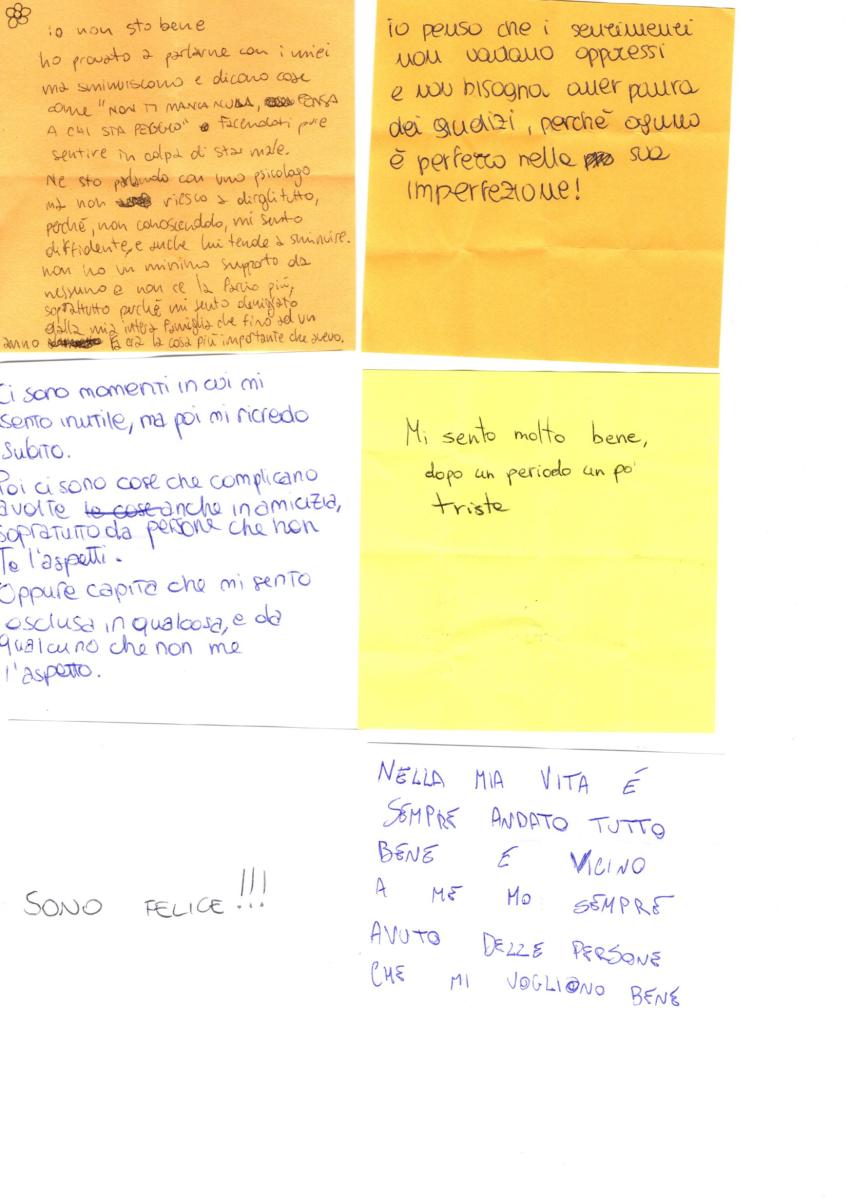 io non sto bene
ho provato a parlarne con i miei
ma sminuiscono e dicono cose
come "NON TI MANCA NULLA, PENSA
A CHI STA PEGGIO" e facendoti pure
sentire in colpa di star male.
Ne sto parlando con uno psicologo
ma non riesco a dirgli tutto,
perché, non conoscendolo, mi sento
diffidente, e anche lui tende a sminuire.
non ho un minimo supporto da
nessuno e non ce la faccio più,
soprattutto perché mi sento denigrato
dalla mia intera famiglia che fino ad un
anno fa era la cosa più importante che avevo.
io penso che i sentimenti
non vadano oppressi
e non bisogna aver paura
dei giudizi, perché ognuno
è perfetto nella sua
imperfezione!
Ci sono momenti in cui mi
sento inutile, ma poi mi ricredo
subito.
Poi ci sono cose che complicano
avolte le cose anche in amicizia,
sopratutto da persone che non
te l'aspetti.
Oppure capita che mi sento
esclusa in qualcosa, e da
qualcuno che non me
l'aspetto.
Mi sento molto bene,
dopo un periodo un po'
triste
SONO FELICE!!!
NELLA MIA VITA É
SEMPRE ANDATO TUTTO
BENE E VICINO
A ME HO SEMPRE
AVUTO DELLE PERSONE
CHE MI VOGLIONO BENE